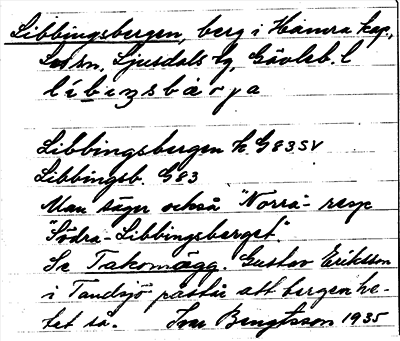 Libbingsbergen, berg i Hamra kap.,
Los sn, Ljusdals tg, Gävleb. l
libiŋsbærja
Libbingsbergen h. G83SV
Libbingsb. G83
Man säger också "Norra- resp
"Södra-Libbingsberget".
Se Takomägg. Gustav Eriksson
i Tandsjö påstår att bergen he-
tet så. Ivar Bengtsson 1935